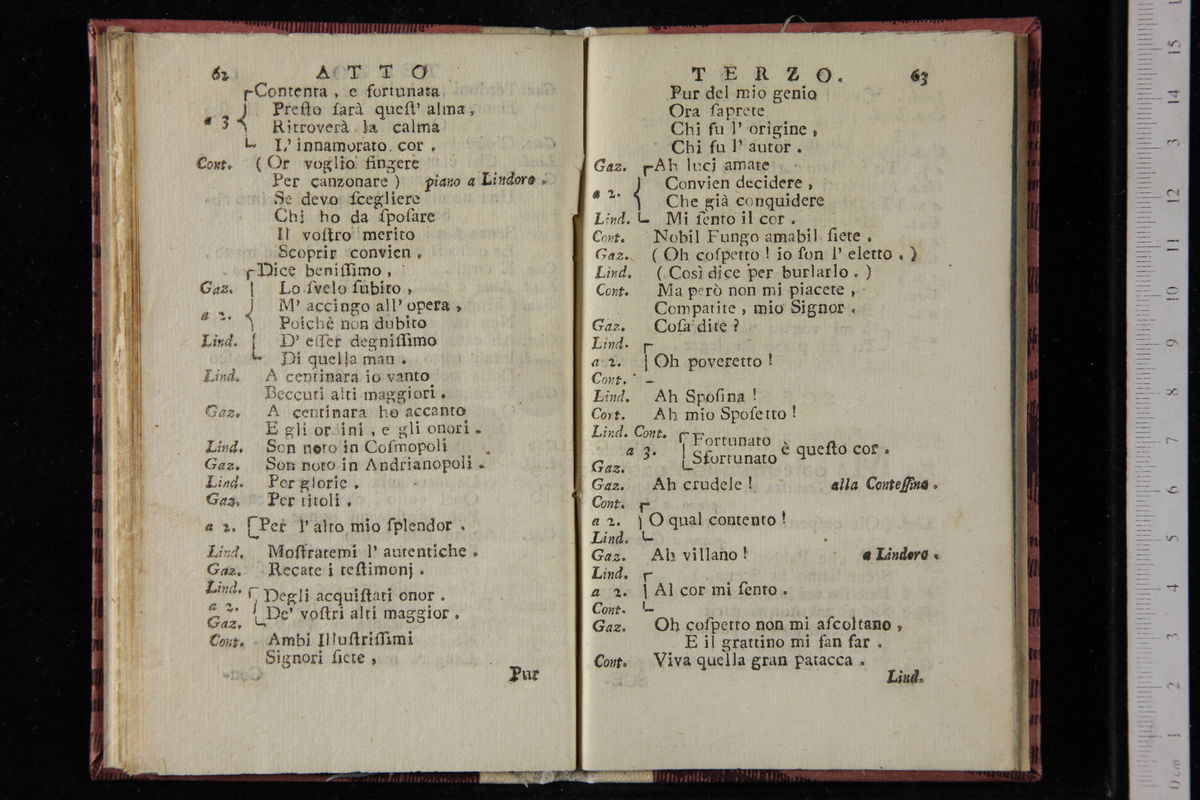 62 ATTO
Contenta, e fortunata
Preſto ſarà queſt' alma,
a 3 Ritroverà la calma
L' innamorato cor.
Cont. (Or voglio fingere
Per canzonare) piano a Lindoro.
Se devo ſcegliere
Chi ho da ſpoſare
Il voſtro merito
Scoprir convien.
Dice beniſſimo,
Gaz. Lo ſvelo ſubito,
M' accingo all' opera,
a 2. Poichè non dubito
Lind. D' eſſer degniſſimo
Di quella man.
Lind. A centinara io vanto
Beccuti alti maggiori.
Gaz. A centinara ho accanto
E gli ordini, e gli onori.
Lind. Son noto in Coſmopoli
Gaz. Son noto in Andrianopoli.
Lind. Per glorie.
Gaz. Per titoli.
a 2. Per l' alto mio ſplendor.
Lind. Moſtratemi l' autentiche.
Gaz. Recate i teſtimonj.
Lind. Degli acquiſtati onor.
a 2.
Gaz. De' voſtri alti maggior.
Cont. Ambi Illuſtriſſimi
Signori ſiete,
Pur
TERZO. 63
Pur del mio genio
Ora ſaprete
Chi fu l' origine,
Chi fu l' autor.
Gaz. Ah luci amate
Convien decidere,
a 2. Che già conquidere
Lind. Mi ſento il cor.
Cont. Nobil Fungo amabil ſiete.
Gaz. (Oh coſpetto! io ſon l' eletto.)
Lind. (Così dice per burlarlo.)
Cont. Ma però non mi piacete,
Compatite, mio Signor.
Gaz. Coſa dite?
Lind.
a 2. Oh poveretto!
Cont.
Lind. Ah Spoſina!
Cort. Ah mio Spoſetto!
Lind. Cont. Fortunato
a 3. è queſto cor.
Gaz. Sfortunato
Gaz. Ah crudele! alla Conteſſina.
Cont.
a 2. O qual contento!
Lind.
Gaz. Ah villano! a Lindoro.
Lind.
a 2. Al cor mi ſento.
Cont.
Gaz. Oh coſpetto non mi aſcoltano,
E il grattino mi fan far.
Cont. Viva quella gran patacca.
Lind.
0 cm 1 2 3 4 5 6 7 8 9 10 11 12 13 14 15